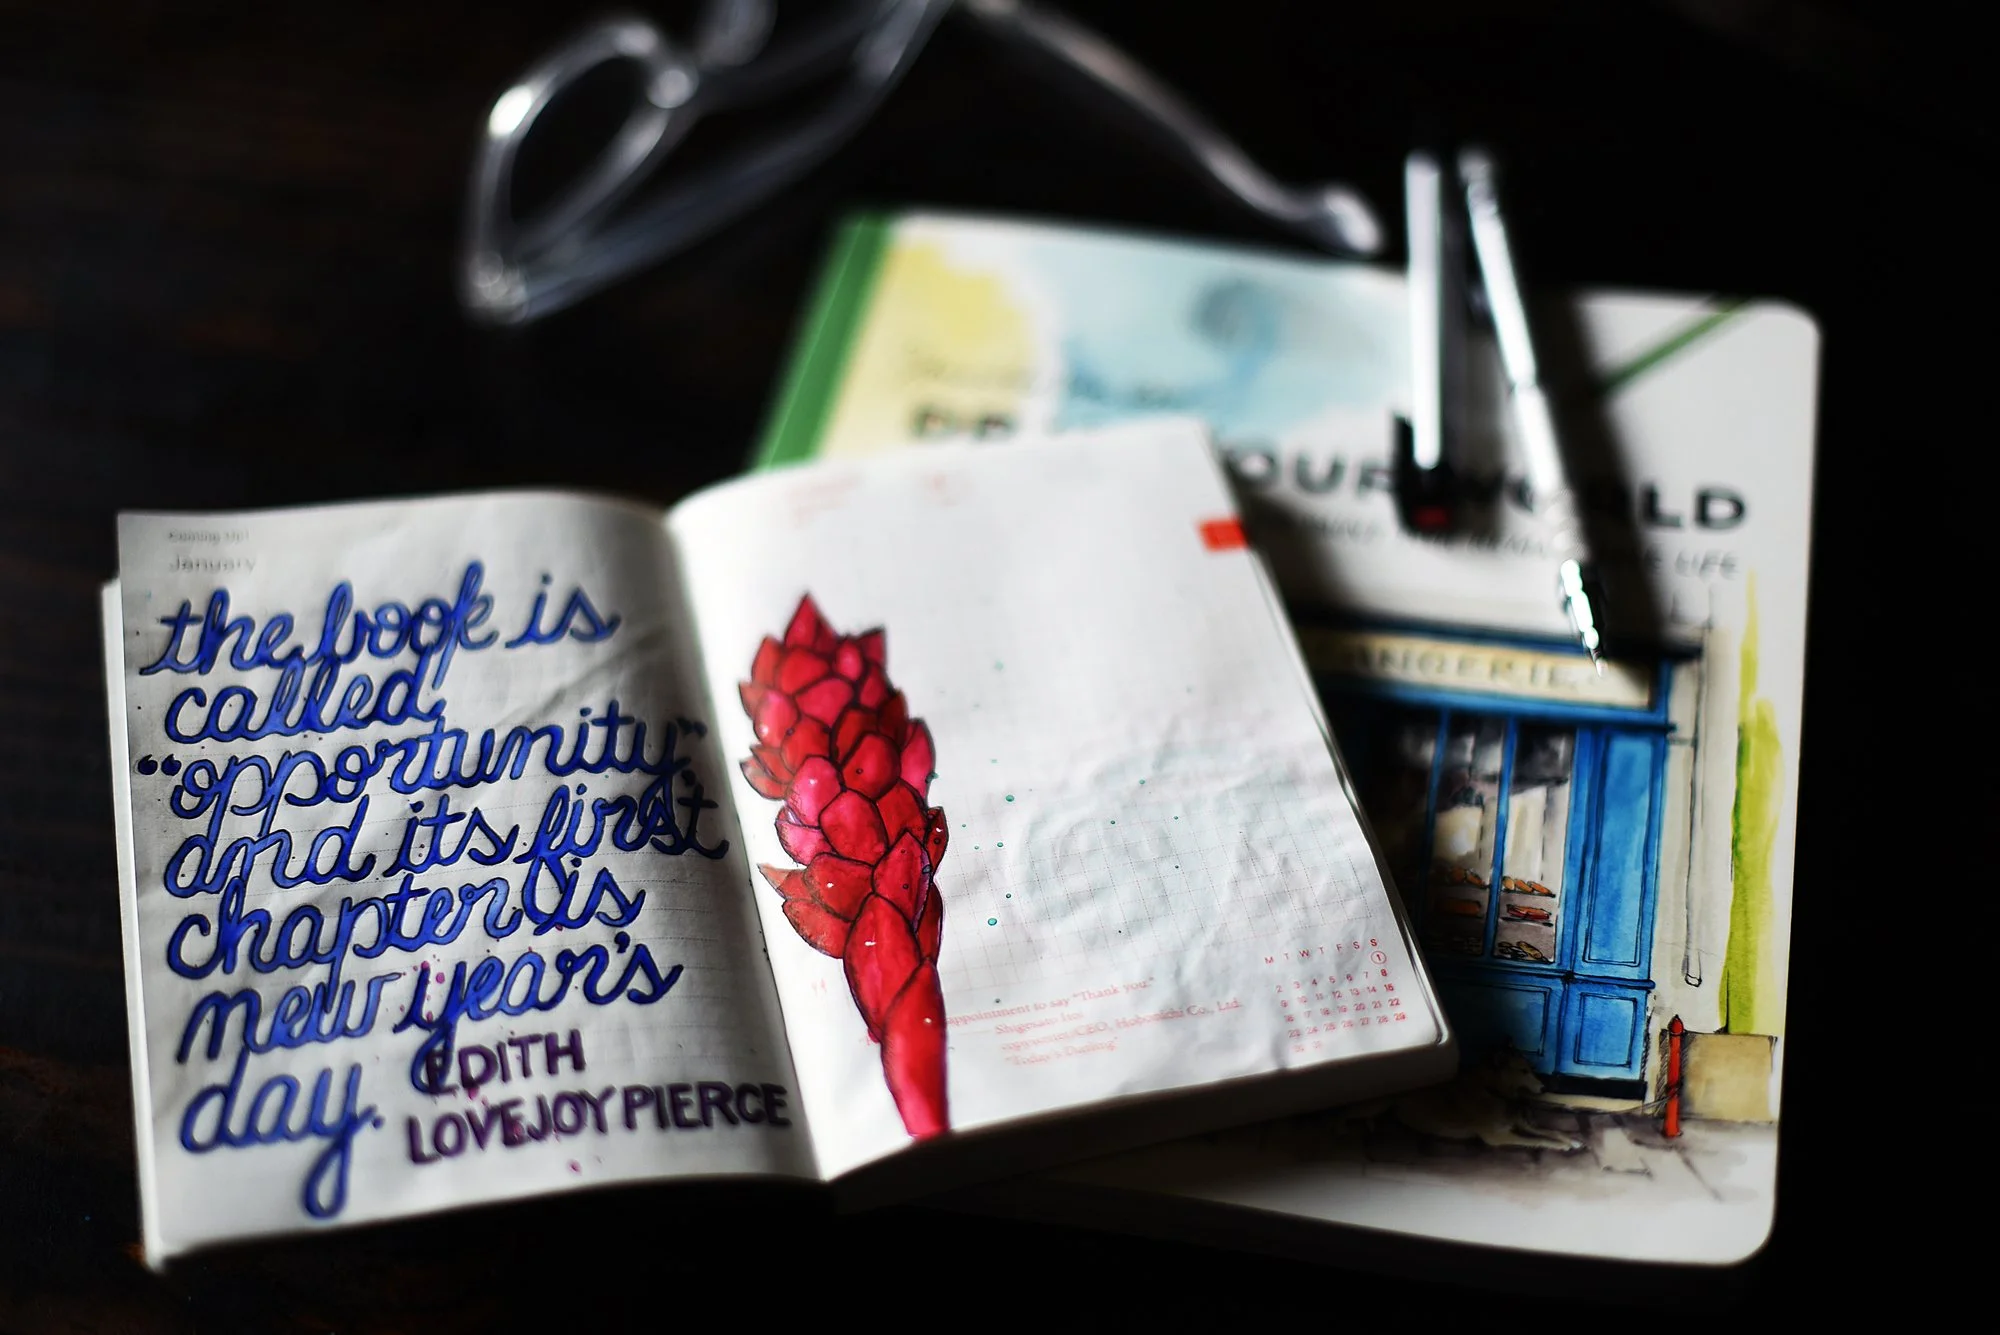 Coming Up!
January
the book is
called
“opportunity”
and its first
chapter is
new year's
day.
EDITH
LOVEJOY PIERCE
appointment to say “Thank you.”
Shigesato Itoi
CEO, Hobonichi Co., Ltd.
“Today's Darling”
M T W T F S S
1
2 3 4 5 6 7 8
9 10 11 12 13 14 15
16 17 18 19 20 21 22
23 24 25 26 27 28 29
30 31
OUR WORLD
LIFE
ANGERIE